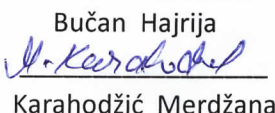 Bučan Hajrija
M. Karahodžić
Karahodžić Merdžana